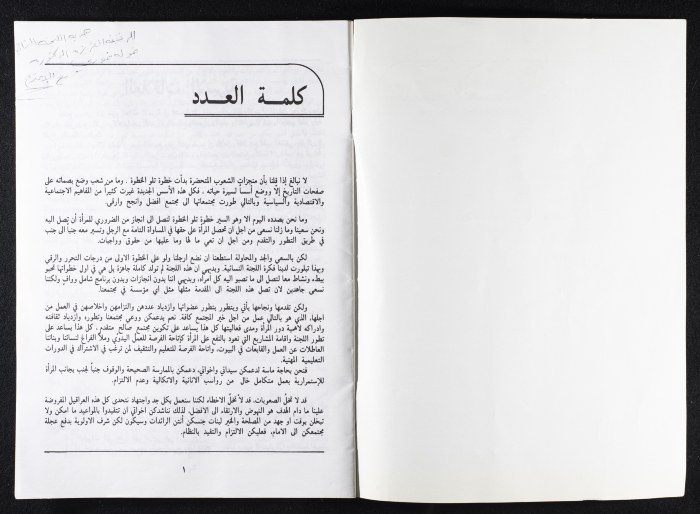 كلمة العدد
لا نبالغ إذا قلنا بأن منجزات الشعوب المتحضرة بدأت خطوة تلو الخطوة . وما من شعب وضع بصماته على
صفحات التأريخ إلّا ووضع أسساً لسيرة حياته ، فكل هذه الأسس الجديدة غيرت كثيراً من المفاهيم الاجتماعية
والاقتصادية والسياسية وبالتالي طورت مجتمعاتها الى مجتمع افضل وأنجح وارقى.
وما نحن بصدده اليوم الا وهو السير خطوة تلو الخطوة لنصل الى انجاز من الضروري للمرأة أن تصل اليه
ونحن سعينا وما زلنا نسعى من اجل ان تحصل المرأة على حقها في المساواة التامة مع الرجل وتسير معه جنباً الى جنب
في طريق التطور والتقدم ومن اجل ان تعي ما لها وما عليها من حقوق وواجبات.
لكن بالسعي والجد والمحاولة استطعنا ان نضع ارجلنا ولو على الخطوة الاولى من درجات التحرر والرقي
وبهذا تبلورت لدينا فكرة اللجنة النسائية. وبديهي ان هذه اللجنة لم تولد كاملة جاهزة بل هي في اول خطواتها تحبو
ببطء ونشاط معا لتصل الى ما تصبو اليه كل امرأة، وبديهي اننا بدون انجازات وبدون برنامج شامل ووافٍ ولكننا
نسعى جاهدين لان تصل هذه اللجنة الى المقدمة مثلها مثل أي مؤسسة في مجتمعنا.
ولكن تقدمها ونجاحها يأتي ويتطور بتطور عضواتها وازدياد عددهن والتزامهن واخلاصهن في العمل من
اجلها، الذي هو بالتالي عمل من اجل خير المجتمع كافة. نعم يدعمكن ووعي مجتمعنا وتطوره، وازدياد ثقافته
وادراكه لأهمية دور المرأة ومدى فعاليتها كل هذا يساعد على تكوين مجتمع صالح متقدم ، كل هذا يساعد على
تطور اللجنة واقامة المشاريع التي تعود بالنفع على المرأة كإتاحة الفرصة للعمل اليدوي وملأ الفراغ لنسائنا وبناتنا
العاطلات عن العمل والقابعات في البيوت، واتاحة الفرصة للتعليم والتثقيف لمن ترغب في الاشتراك في الدورات
التعليمية المهنية.
فنحن بحاجة ماسة لدعمكن سيداتي واخواتي، دعمكن بالممارسة الصحيحة والوقوف جنباً لجنب بجانب المرأة
للإستمرارية بعمل متكامل خال من رواسب الانانية والاتكالية وعدم الالتزام.
قد لا تخلُ الصعوبات، قد لا تخلُ الاخطاء لكننا سنعمل بكل جد واجتهاد نتحدى كل هذه العراقيل المفروضة
علينا ما دام الهدف هو النهوض والارتقاء الى الافضل. لذلك نناشدكن اخواتي ان تتقيدوا بالمواعيد ما امكن ولا
تبخلن بوقت أو جهد من المصلحة والخير لبنات جنسكن أنتن الرائدات وسيكون لكن شرف الاولوية بدفع عجلة
مجتمعكن الى الامام، فعليكن الالتزام والتقيد بالنظام.
١